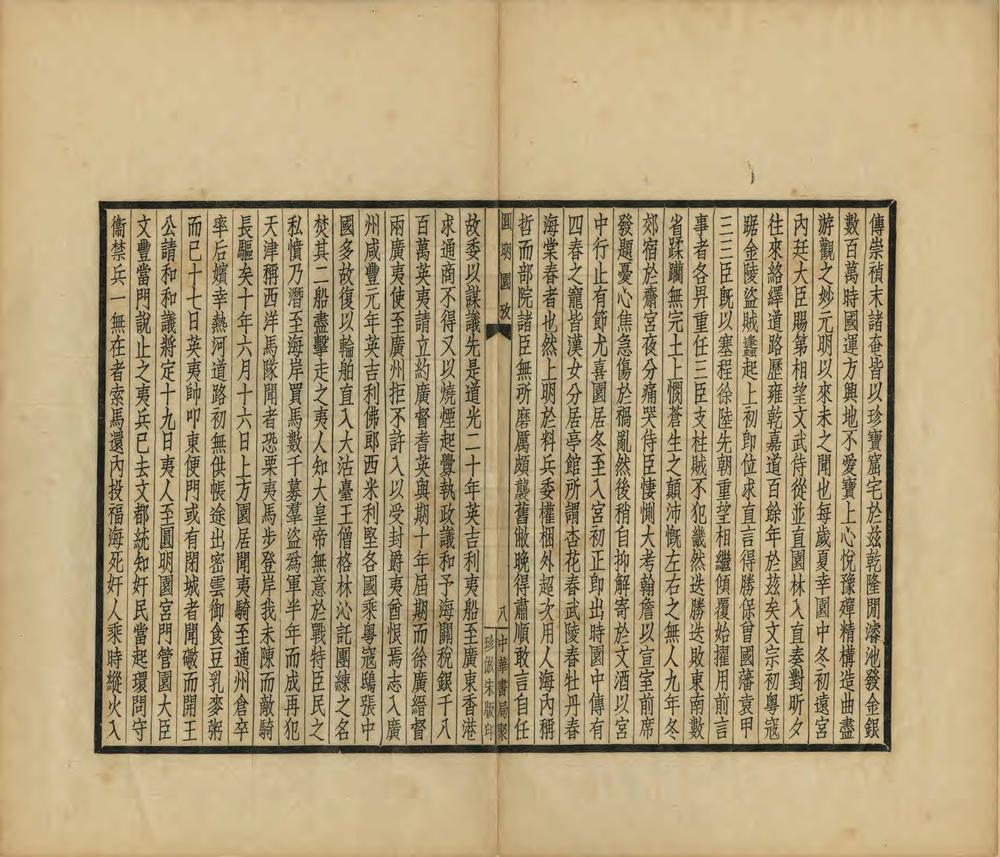 傳崇禎末諸奄皆以珍寶窟宅於茲乾隆閒濬池發金銀
數百萬時國運方興地不愛寶上心悅豫殫精構造曲盡
游觀之妙元明以來未之聞也每歲夏幸園中冬初還宮
內廷大臣賜第相望文武侍從並直園林入直奏對昕夕
往來絡繹道路歷雍乾嘉道百餘年於茲矣文宗初粵寇
踞金陵盜賊蠭起上初卽位求直言得勝保曾國藩袁甲
三三臣旣以塞程徐陸先朝重望相繼傾覆始擢用前言
事者各畀重任三臣支柱賊不犯畿然迭勝迭敗東南數
省蹂躪無完土上憫蒼生之顛沛慨左右之無人九年冬
郊宿於齋宮夜分痛哭侍臣悽惻大考翰詹以宣室前席
發題憂心焦急傷於禍亂然後稍自抑解寄於文酒以宮
中行止有節尤喜園居冬至入宮初正卽出時園中傳有
四春之寵皆漢女分居亭館所謂杏花春武陵春牡丹春
海棠春者也然上明於料兵委權梱外超次用人海內稱
哲而部院諸臣無所磨厲頗襲舊敝晚得肅順敢言自任
圓明園攷
八
中華書局聚
珍倣宋版印
故委以謀議先是道光二十年英吉利夷船至廣東香港
求通商不得又以燒煙起釁執政議和予海關稅銀千八
百萬英夷請立約廣督耆英與期十年屆期而徐廣縉督
兩廣夷使至廣州拒不許入以受封爵夷酋恨焉志入廣
州咸豐元年英吉利佛郎西米利堅各國乘粵寇鴟張中
國多故復以輪舶直入大沽臺王僧格林沁託團練之名
焚其二船盡擊走之夷人知大皇帝無意於戰特臣民之
私憤乃潛至海岸買馬數千募羣盜爲軍半年而成再犯
天津稱西洋馬隊聞者恐栗夷馬步登岸我未陳而敵騎
長驅矣十年六月十六日上方園居聞夷騎至通州倉卒
率后嬪幸熱河道路初無供帳途出密雲御食豆乳麥粥
而已十七日英夷帥叩東便門或有閉城者聞礮而開王
公請和和議將定十九日夷人至圓明園宮門管園大臣
文豐當門說止之夷兵已去文都統知奸民當起環問守
衞禁兵一無在者索馬還內投福海死奸人乘時縱火入